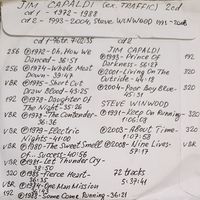 JIM CAPALDI (ex. TRAFFIC) 2cd
cd 1 - 1972 - 1988
cd 2 - 1993-2004, Steve WINWOOD 1991-2008
cd 1 -
256 ℗1972 - Oh, How We Danced - 36:51
256 ℗1974 - Whale Meat Down - 39:41
VBR ℗1975 - Short Cut Draw Blood - 43:25
192 ℗1978 - Daughter Of The Night - 35:26
VBR ℗1978 - The Contender - 36:36
VBR ℗1979 - Electric Night - 41:00
VBR ℗1980 - The Sweet Smell of... Success - 40:56
VBR ℗1981 - Let The Thunder Cry - 38:50
320 ℗1983 - Fierce Heart - 36:35
VBR ℗1984 - One Man Mission
192 ℗1988 - Some Come Running - 36:21
cd 2
JIM CAPALDI
℗1993 - Prince Of Darkness - 56:27 192
℗2001 - Living On The Outside - 49:18 320
℗2004 - Poor Boy Blue - 53:35 320
STEVE WINWOOD
℗1991 - Keep On Running - 1:06:08 320
℗2003 - About Time - 1:07:58 VBR
℗2008 - Nine Lives - 57:17 VBR
72 tracks
5:37:41